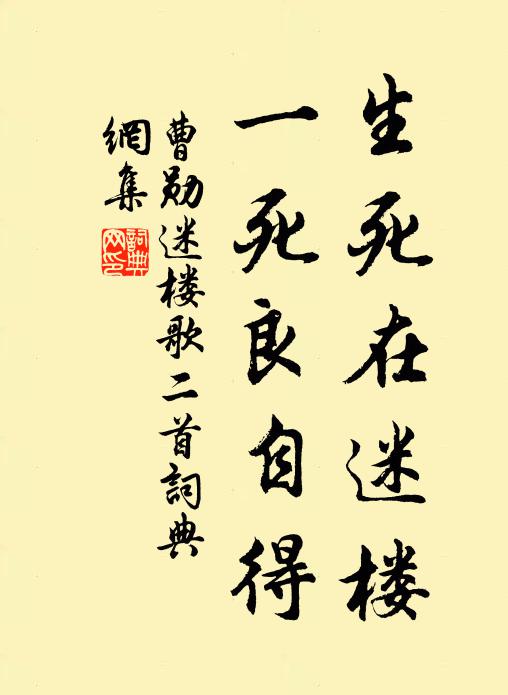 生死在迷楼
一死良自得
曹勋迷楼歌二首詞典
網集
詞典网印